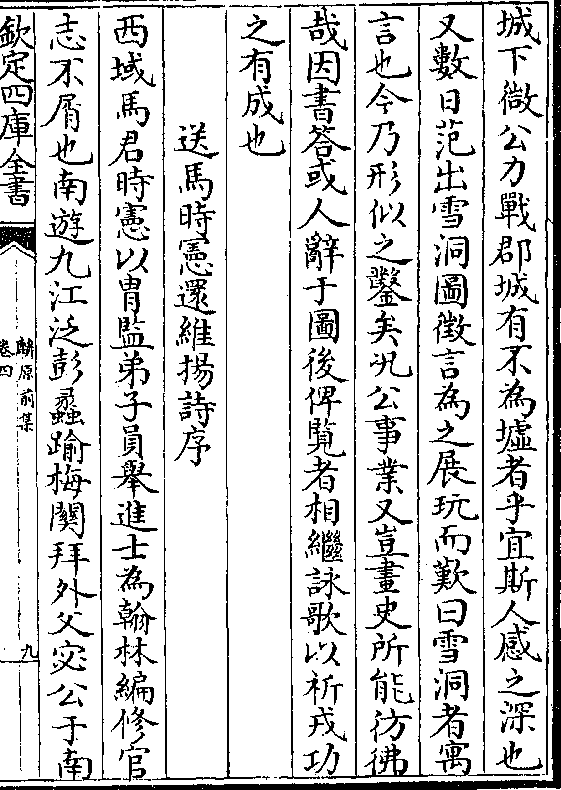 城下微公力戰郡城有不為墟者乎宜斯人感之深也
又數日范出雪洞圖徵言為之展玩而歎曰雪洞者寓
言也今乃形似之鑿矣況公事業又豈畫史所能彷彿
哉因書答或人辭于圖後俾覽者相繼詠歌以祈戎功
之有成也
送馬時憲還維揚詩序
西域馬君時憲以胄監弟子員舉進士為翰林編修官
志不屑也南遊九江泛彭蠡踰梅關拜外父宓公于南
欽定四庫全書
麟原前集
卷四
九